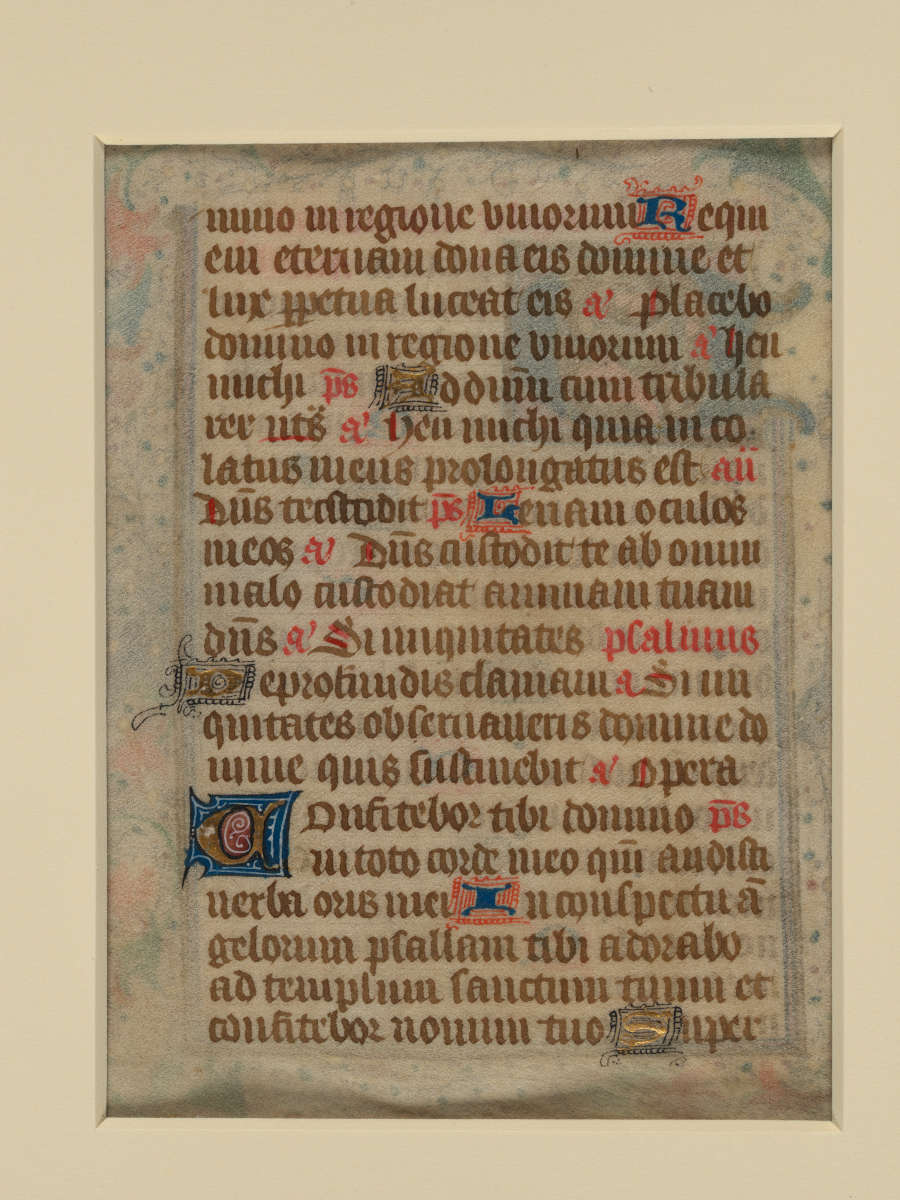 mino in regione viuorum Requi
em eternam dona eis domine et
lux ꝑpetua luceat eis a' Placebo
domino in regione viuorum a' heu
michi ps̄ Ad dn̄m cum tribula
rer uts̄ a' Heu michi quia inco
latus meus prolongatus est an̄
Dn̄s te custodit ps̄ Leuaui oculos
meos a' Dn̄s custodit te ab omni
malo custodiat animam tuam
dn̄s a' Si iniquitates psalmus
De profundis clamaui a' Si ini
quitates obseruaueris domine do
mine quis sustinebit a' Opera
Confitebor tibi domino ps̄
in toto corde meo qm̄ audisti
verba oris mei In conspectu ā
gelorum psallam tibi adorabo
ad templum sanctum tuum et
confitebor nomini tuo Super